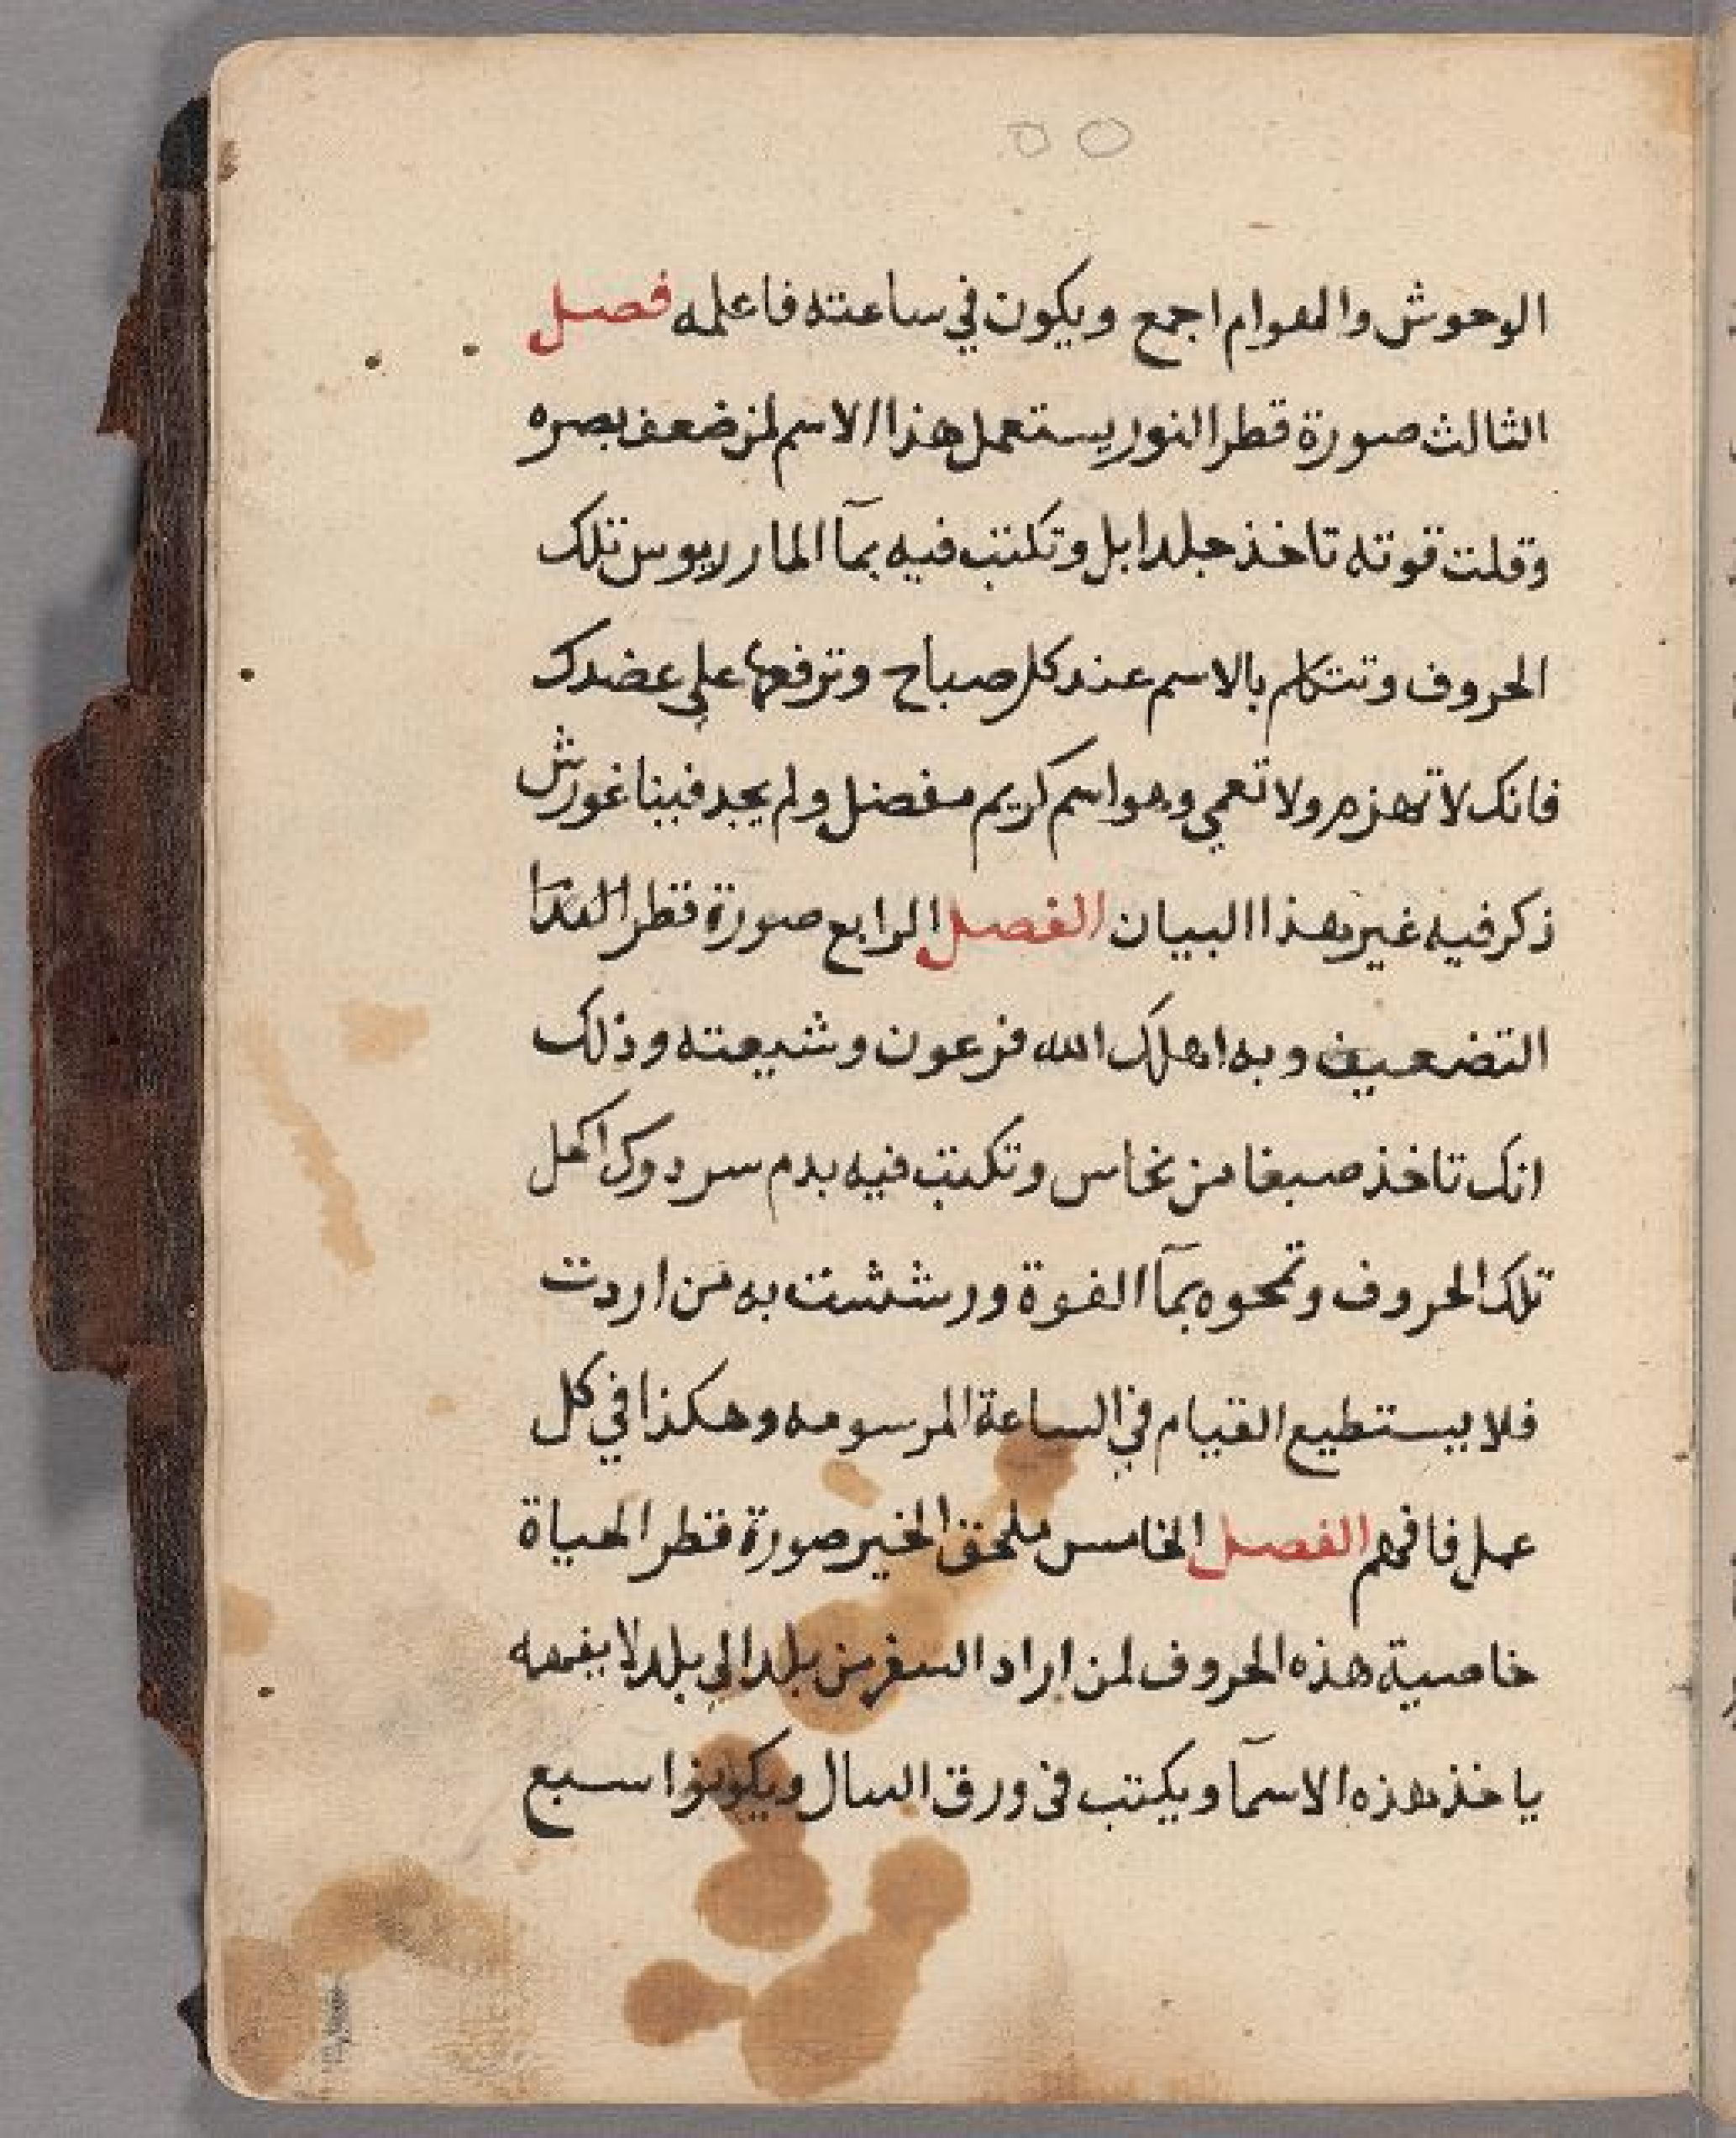 ٥٥
الوحوش والهوام اجمع ويكون في ساعته فاعلمه فصل
الثالث صورة قطر النور يستعمل هذا الاسم لمن ضعف بصره
وقلت قوته تاخذ جلد ابل وتكتب فيه بمآ تلك
الحروف وتتكلم بالاسم عند كل صباح وترفعها على عضدك
فانك لا تهزم ولا تعمي وهو اسم كريم مفضل ولم يجد فيثاغورش
ذكر فيه غير هذا البيان الفصل الرابع صورة قطر
التضعيف وبه اهلك الله فرعون وشيعته وذلك
انك تاخذ صبغا من نحاس وتكتب فيه بدم
تلك الحروف وتمحوه بمآ الفوة ورششت به من اردت
فلا يستطيع القيام في الساعة المرسومه وهكذا في كل
عمل فافهم الفصل الخامس ملحق الخير صورة قطر الحياة
خاصية هذه الحروف لمن اراد السفر من بلد الى بلد لا
ياخذ هذه الاسمآ ويكتب في ورق ويكونوا سبع